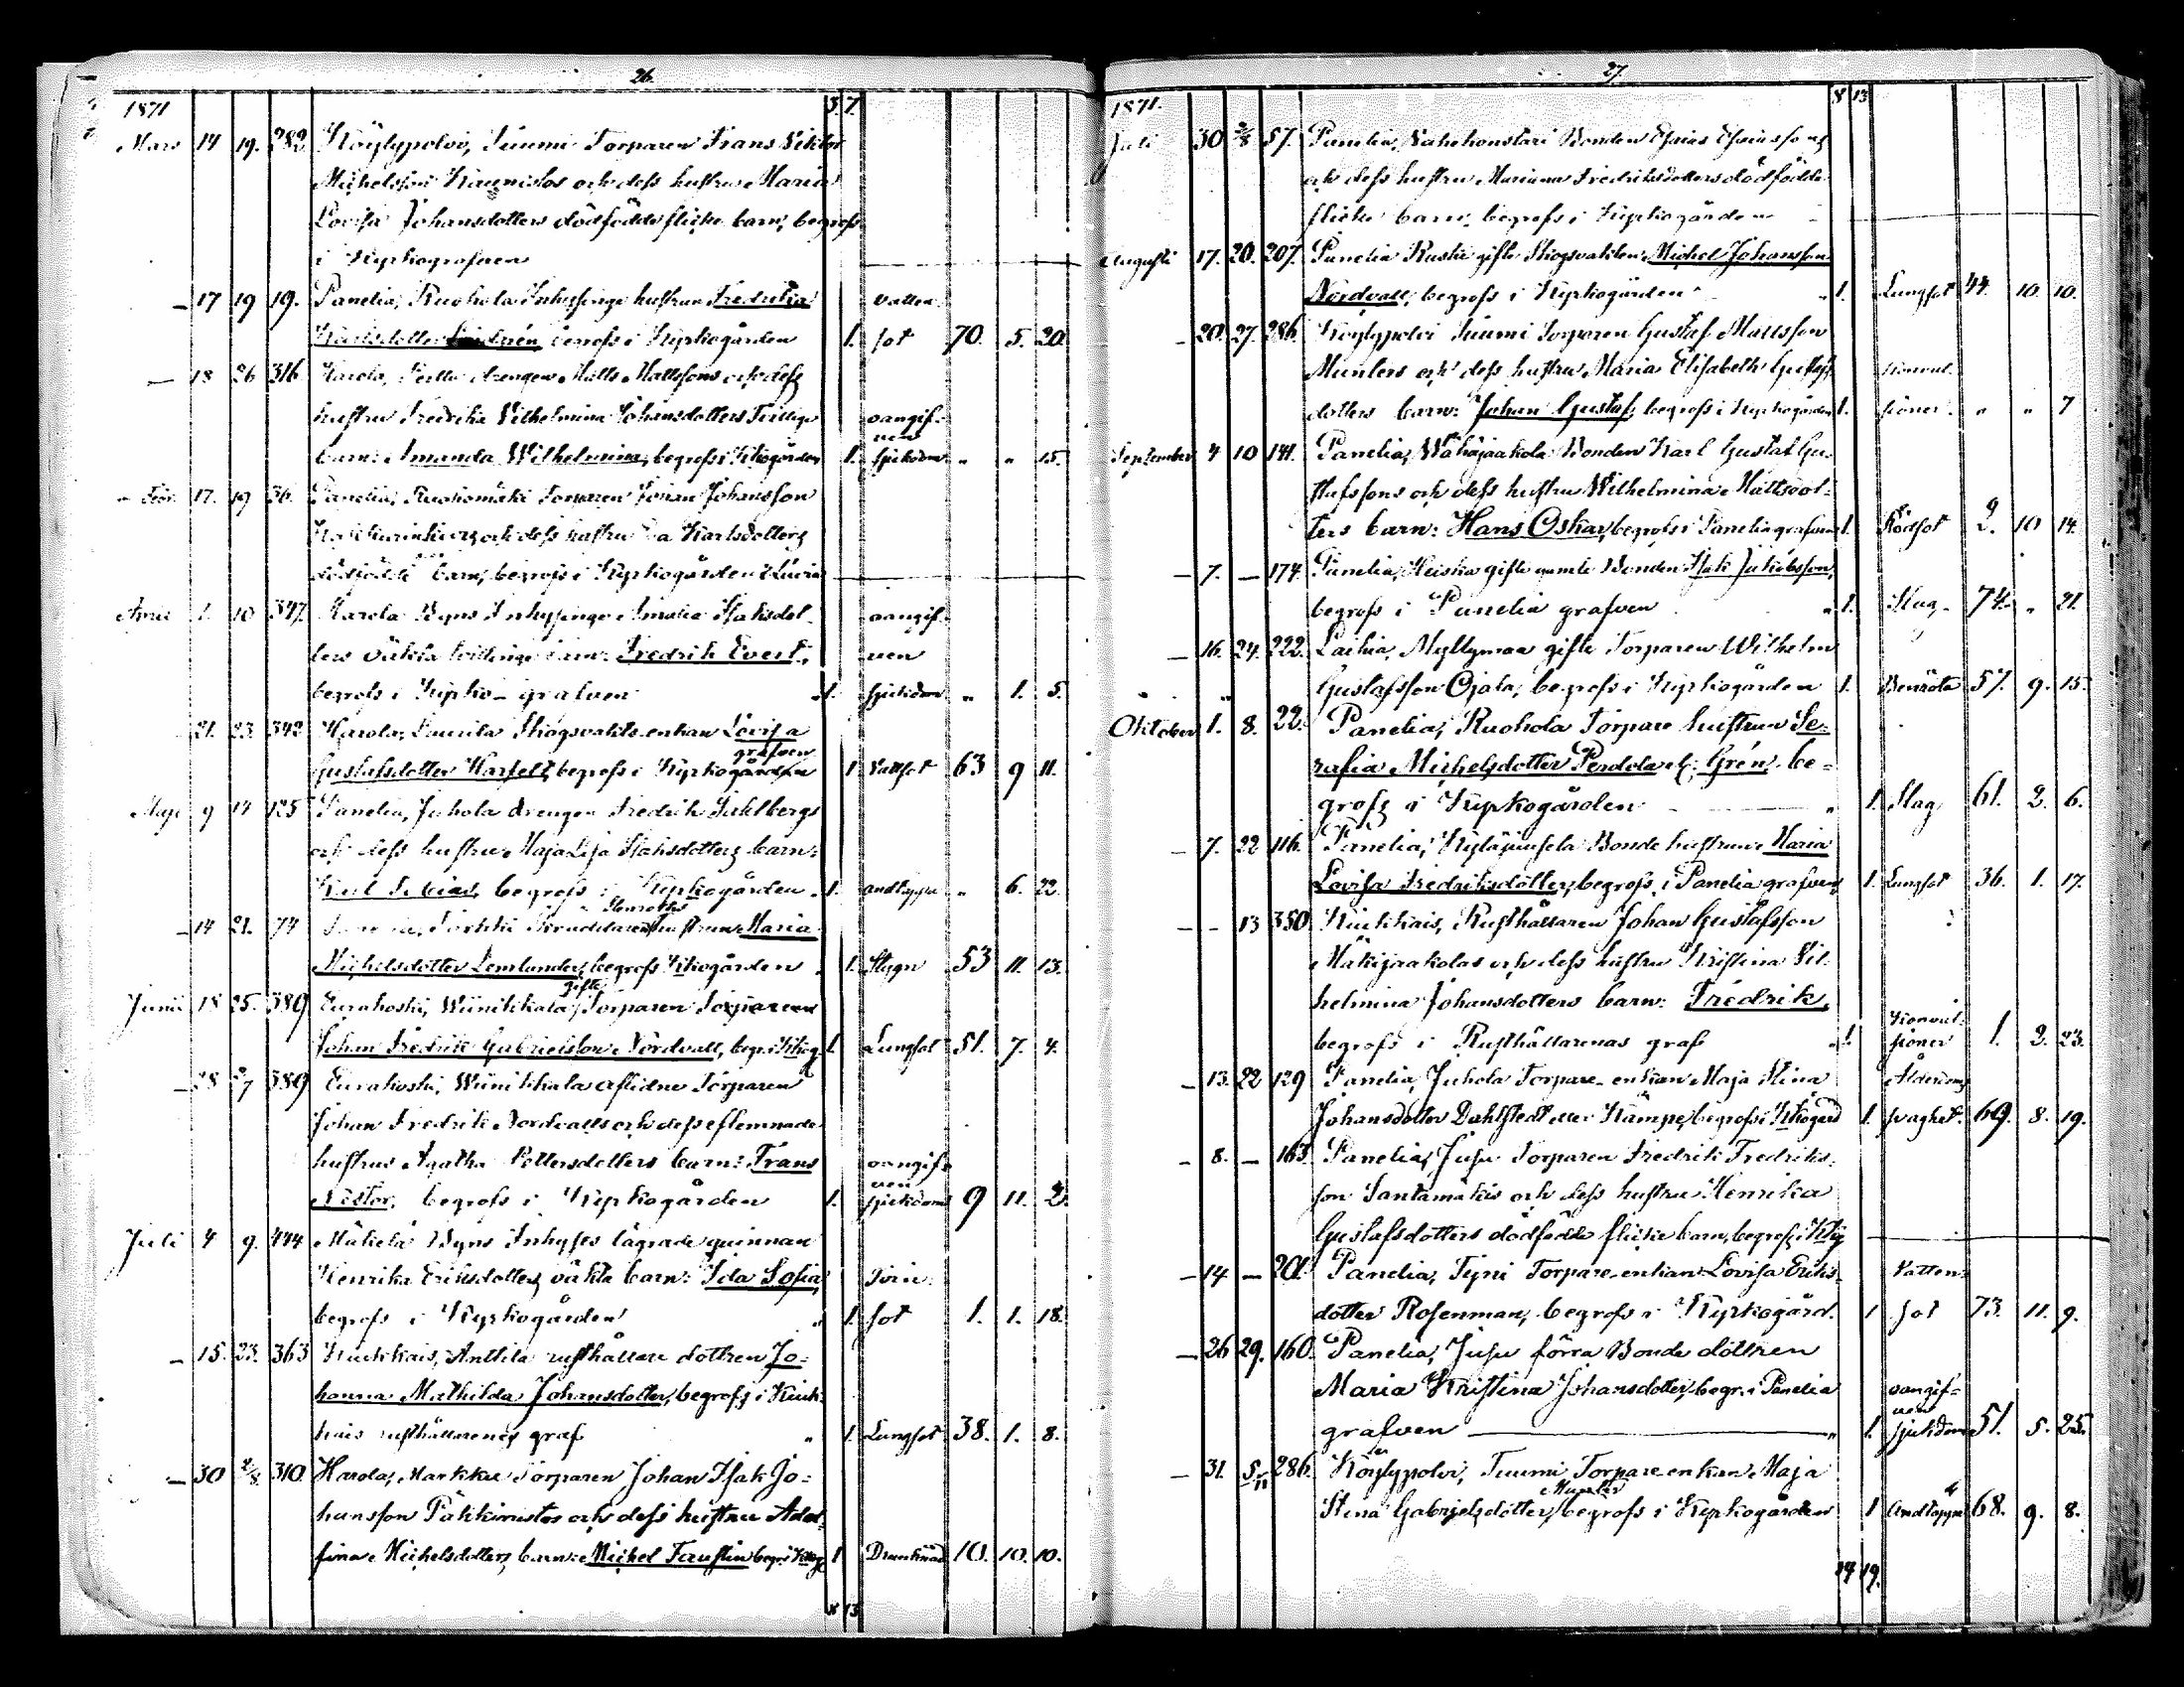 26.
1871 5 7.
Mars 14 19. 282 Köylypolvi, Tuumi Torparen Frans Viktor
Michelsson Kaunistos och dess hustru Maria
Lovisa Johansdotters dödfödde flicke barn, begrofs
i Kyrkografven
— 17 19 19. Panelia, Ruohola Inhysinge hustrun Fredrika vatten
Karlsdotter begrofs i Kyrkogården 1. sot 70. 5. 20.
— 18 26 316 Harola, drengen Matts Mattssons och dess
hustru Fredrika Vilhelmina Johansdotters Trillinge oangif-
barn: Amanda Wilhelmina, begrofs i Kkogården 1. nen sjukdom " " 15.
17. 19 36. Panelia, Ruohomäki Torparen Johan Johansson
och dess hustru Karlsdotters
dödfödde barn, begrofs i Kyrkogården
April 1. 10 347. Harola Byns Inhysinge Amalia Isaksdot- oangif-
ters oäkta tvillinge barn: Fredrik Evert, nen
begrofs i Kyrko-grafven 1. sjukdom " 1. 5.
21. 23 342 Harola, Skogsvakts enkan Lovisa
grafven
Gustafsdotter begrofs i Kyrkogården 1 Vattsot 63 9 11.
Maji 9 14 125 Panelia, Juhola drengen Fredrik Sahlbergs
och dess hustru Maja Lisa Isaksdotters barn:
Karl begrofs i Kyrkogården 1. andtäppa " 6. 22.
— 14 21. 74 hustrun Maria
Michelsdotter Lemlunder, begrofs Kkogården 1. Stygn 53 11. 13.
gifte
Junii 18 25. 389 Eurakoski, Wiinikkala Torparen Torparen
Johan Fredrik Gabrielsson Nordvall, begr. i Kkog 1. Lungsot 51. 7. 4.
— 28 2/7 389 Eurakoski, Wiinikkala aflidne Torparen
Johan Fredrik Nordvalls och dess efterlemnade
hustrus Agatha Pettersdotters barn: Frans oangif-
Nestor, begrofs i Kyrkogården 1. nen sjukdom 9 11. 2.
Juli 4 9. 444 Mäkelä Byns Inhyses lägrade quinnan
Henrika Eriksdotters oäkta barn: Ida Sofia, Torr-
begrofs i Kyrkogården " 1. sot 1. 1. 18.
— 15. 23. 363 Kiukkais, Anttila rusthållare dottren Jo-
hanna Mathilda Johansdotter, begrofs i Kiuk-
kais rusthållarenes graf " 1. Lungsot 38. 1. 8.
— 30 2/8 310. Harola, Markkae Torparen Johan Isak Jo-
hansson Pähkimistos och dess hustru Adol-
fina Michelsdotters barn: Michel Faustin begr. i Kkog 1 Drunknad 10. 10. 10.
8 13
27.
1871. 8 13
Juli 30 2/8 57. Panelia, Bonden Esaias Esaiassons
och dess hustru Mariana Fredriksdotters dödfödde
flicke barn, begrofs i Kyrkogården
Augusti 17. 20. 207. Panelia gifte Skogsvakten Michel Johansson
Nordvall, begrofs i Kyrkogården 1. Lungsot 44. 10. 10.
— 20. 27. 286. Köylypolvi Tuumi Torparen Gustaf Mattsson
Munters och dess hustru Maria Elisabeth Gustafs Konvul-
dotters barn: Johan Gustaf, begrofs i Kyrkogården 1. sioner " " 7
September 4 10 141. Panelia, Wähäjaakola Bonden Karl Gustaf Gu-
stafssons och dess hustru Wilhelmina Mattsdot-
ters barn: Hans Oskar, begrofs i Panelia grafven 1. Rödsot 2. 10 14.
— 7. — 174. Panelia, Heiska gifte gamle Bonden Isak Jakobsson,
begrofs i Panelia grafven " 1. Slag 74. " 21.
— 16. 24. 222. Laihia, Myllymaa gifte Torparen Wilhelm
Gustafsson Ojala, begrofs i Kyrkogården 1. Benröta 57. 9. 15.
Oktober 1. 8. 22. Panelia, Ruohola Torpare hustrun Se-
rafia Michelsdotter Perdola l. Grén, be-
grofs i Kyrkogården " 1. Slag 61. 2. 6.
— 7. 22 116. Panelia, Bonde hustrun Maria
Lovisa Fredriksdotter, begrofs i Panelia grafven 1. Lungsot 36. 1. 17.
— - 13 350 Kiukkais, Rusthållaren Johan Gustafsson
Mäkijaakolas och dess hustru Kristina Vil-
helmina Johansdotters barn: Fredrik, Konvul-
begrofs i Rusthållarenas graf " 1. sioner 1. 2. 23.
— 13. 22 129 Panelia, Juhola Torpare-enkan Maja Stina Ålderdoms
Johansdotter Dahlstedt eller Kämpe, begrofs i Kkogård 1. svaghet. 69. 8. 19.
- 8. — 163. Panelia, Juju Torparen Fredrik Fredriks-
son Santamäkis och dess hustru Henrika
Gustafsdotters dödfödde flicke barn, begrofs i Kkg
— 14 — 201. Panelia, Tyni Torpare-enkan Lovisa Eriks- Vatten-
dotter Rosenman, begrofs i Kyrkogård. 1 sot 73. 11. 9.
— 26 29. 160. Panelia, Juju förra Bonde döttren
Maria Kristina Johansdotter, begr. i Panelia oangif-
grafven " 1. nen sjukdom 51. 5. 25.
— 31. 5/11 286. Köylypolvi, Tuumi Torpare enkan Maja
Munter
Stina Gabrielsdotter, begrofs i Kyrkogården 1 Andtäppa 68. 9. 8.
14 19.